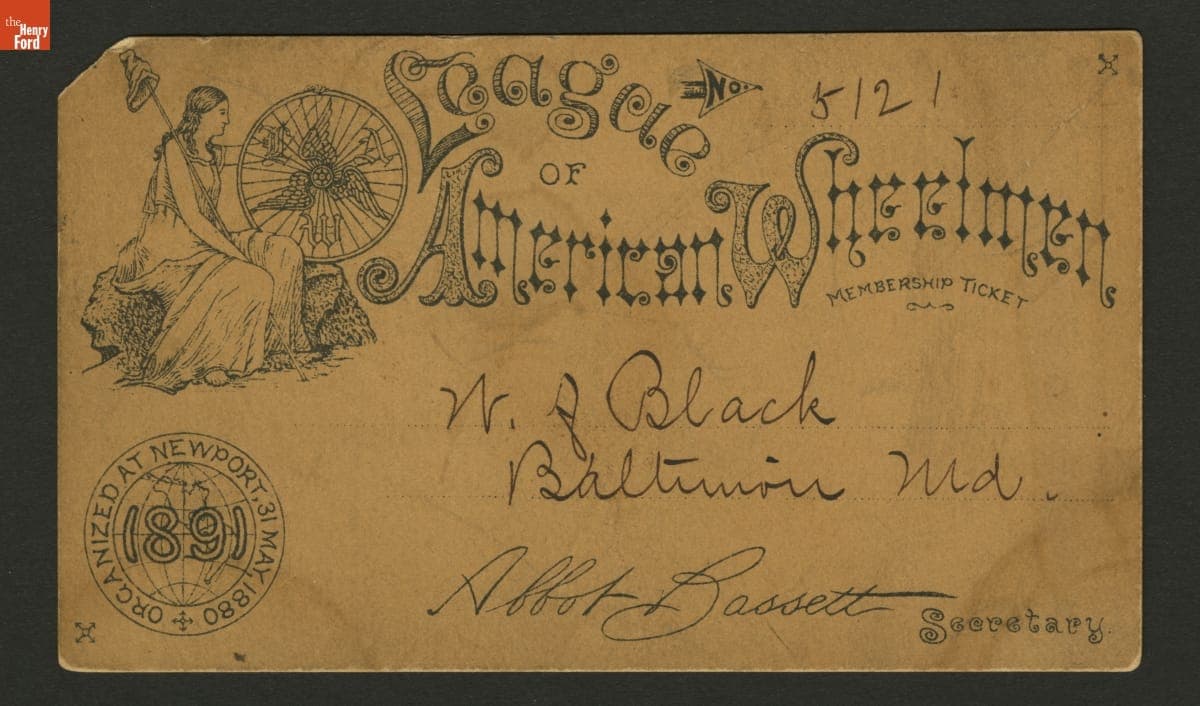 the
Henry
Ford
League No. 5121
OF
American Wheelmen
MEMBERSHIP TICKET
L A W
W. J Black
Baltimore Md.
ORGANIZED AT NEWPORT, 31 MAY, 1880
1891
Abbot Bassett
Secretary.